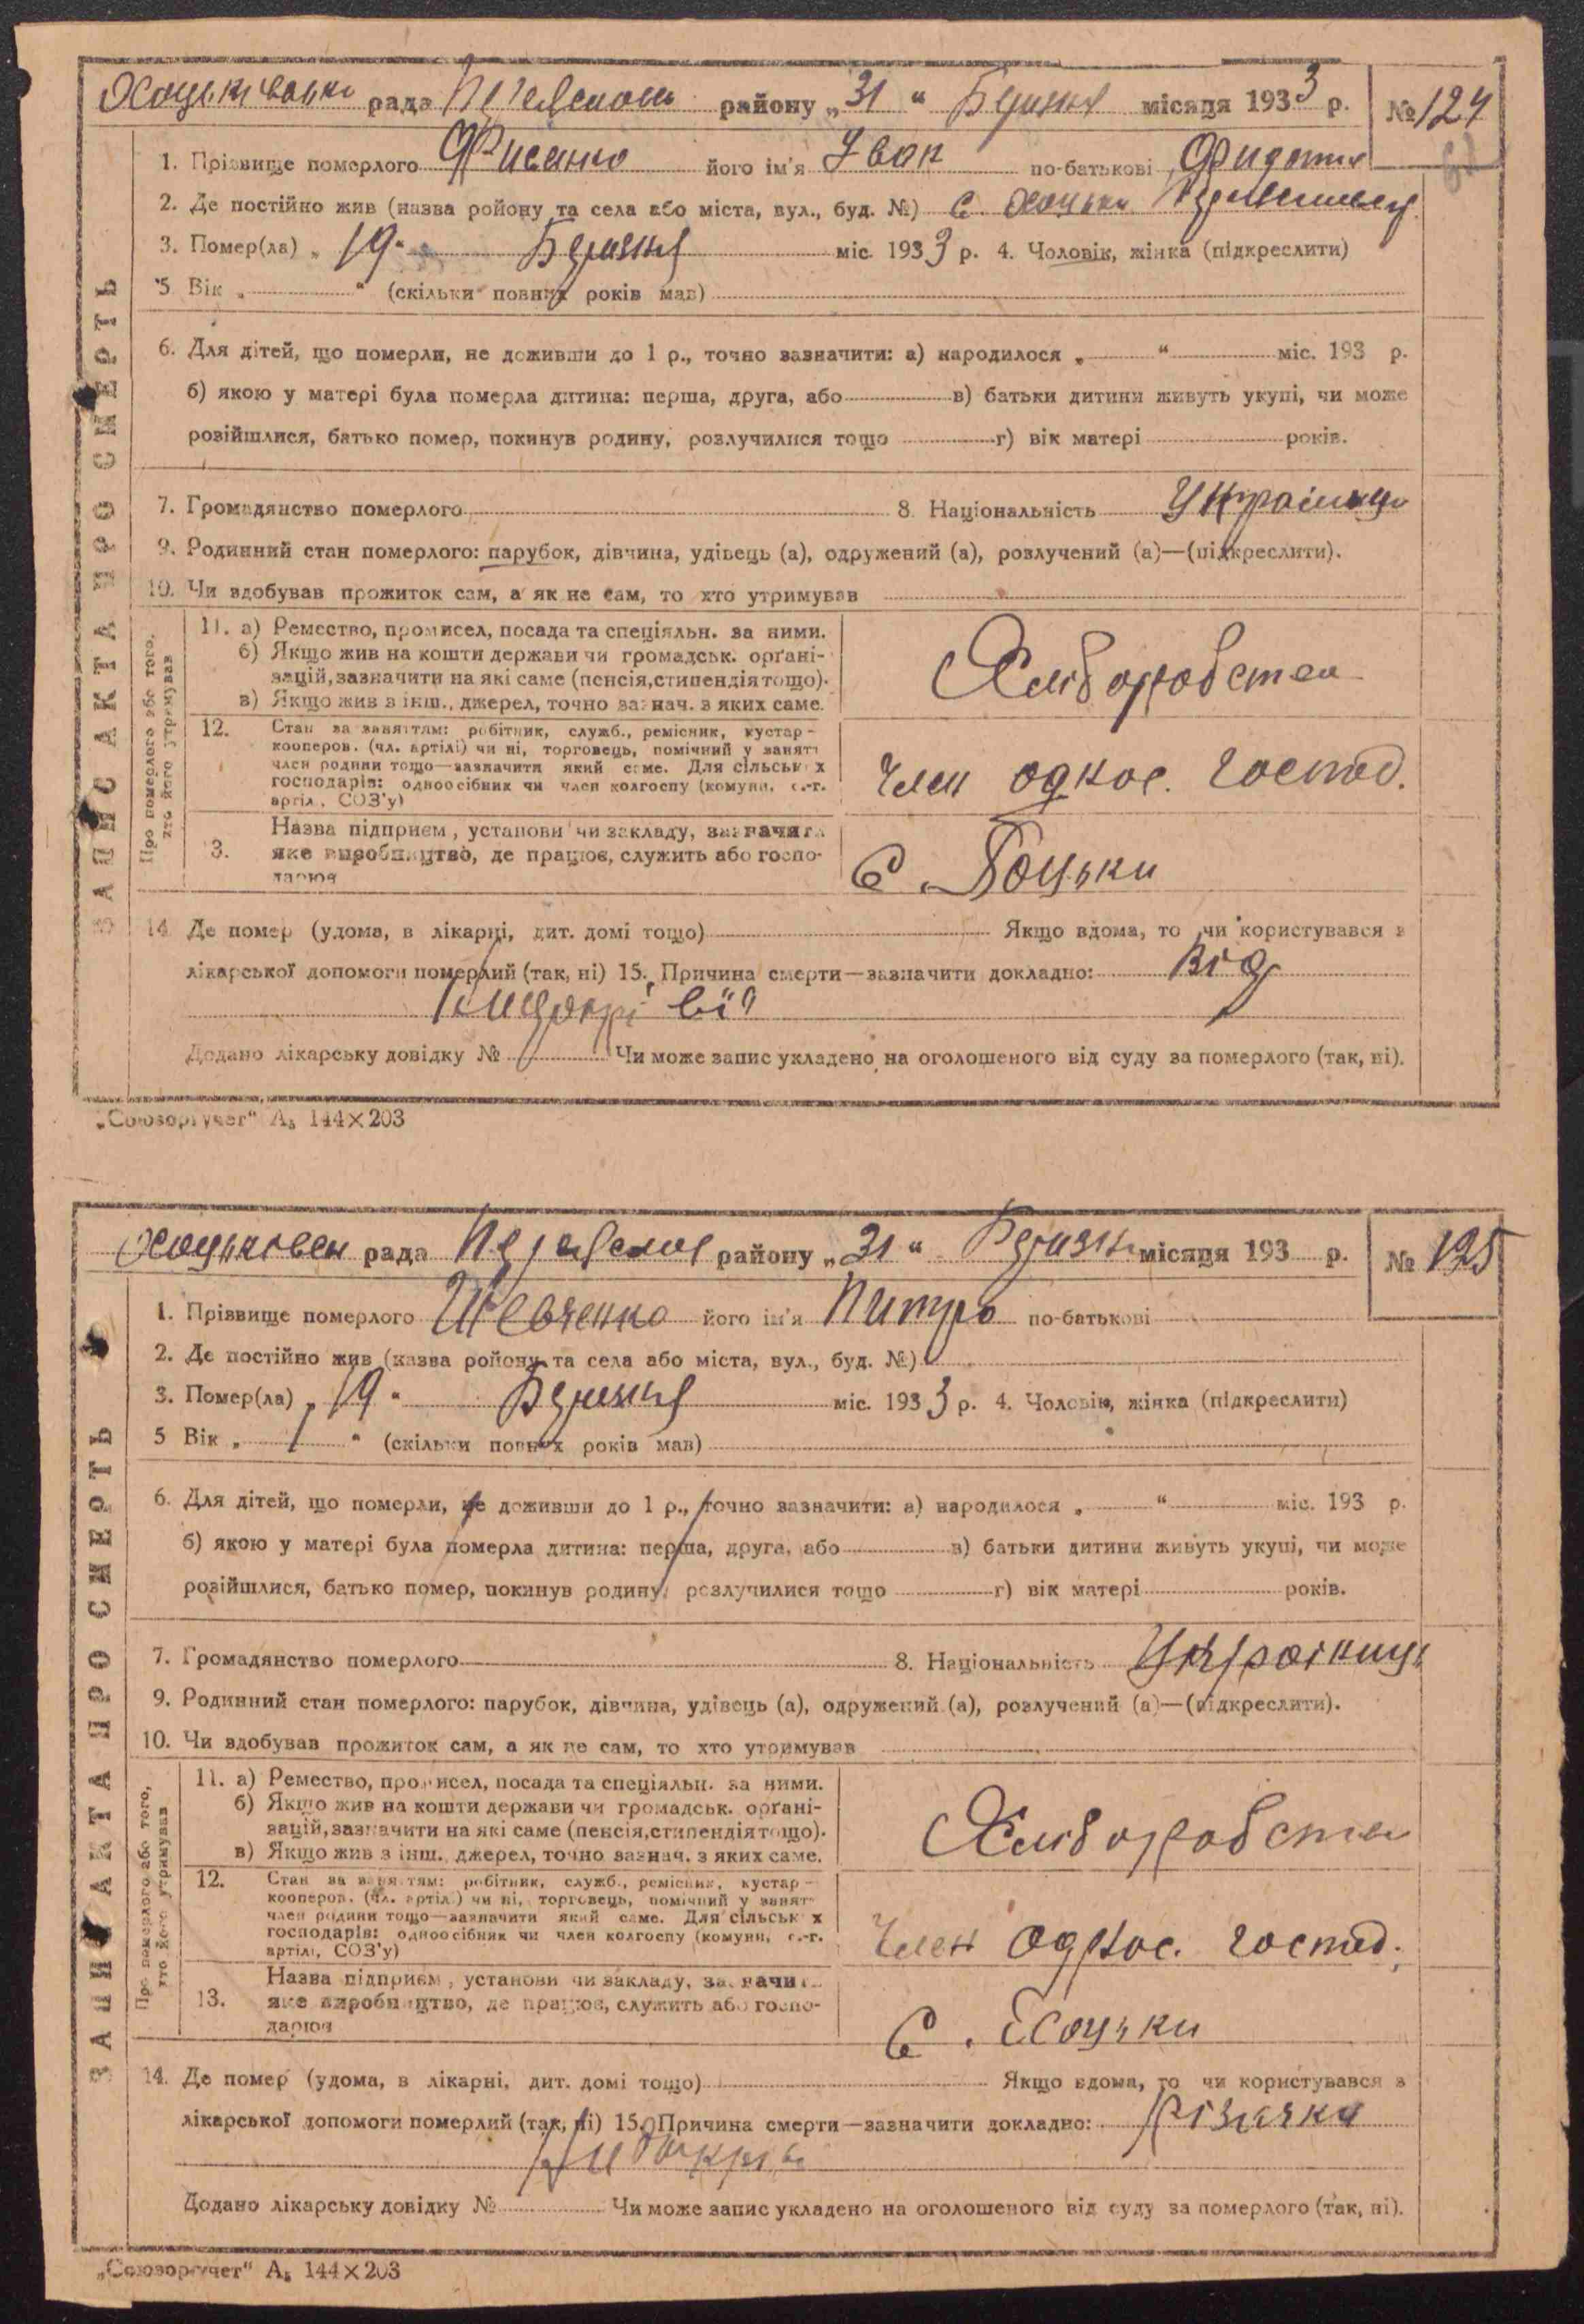 Хоцьківська рада Переяславськ району „31“ Березня місяця 1933 р. № 124
1. Прізвище померлого Фисенко його ім'я Іван по-батькові
2. Де постійно жив (назва ройону та села або міста, вул., буд. №) с. Хоцьки
3. Помер(ла) „19“ Березня міс. 1933 р. 4. Чоловік, жінка (підкреслити)
5 Вік „ “ (скільки повних років мав)
6. Для дітей, що померли, не доживши до 1 р., точно зазначити: а) народилося „ “ міс. 193 р.
б) якою у матері була померла дитина: перша, друга, або в) батьки дитини живуть укупі, чи може
розійшлися, батько помер, покинув родину, розлучилися тощо г) вік матері років.
7. Громадянство померлого 8. Національність Українець
9. Родинний стан померлого: парубок, дівчина, удівець (а), одружений (а), розлучений (а)—(підкреслити).
10. Чи здобував прожиток сам, а як не сам, то хто утримував
ЗАПИС АКТА ПРО СМЕРТЬ
Про померлого або того,
хто його утримував
11. а) Ремество, промисел, посада та спеціяльн. за ними.
б) Якщо жив на кошти держави чи громадськ. орґані-
зацій, зазначити на які саме (пенсія, стипендія тощо).
в) Якщо жив з інш., джерел, точно зазнач. з яких саме.
Хліборобство
12. Стан за заняттям: робітник, служб., ремісник, кустар-
кооперов. (чл. артілі) чи ні, торговець, помічний у занятт
член родини тощо—зазначити який саме. Для сільськ х
господарів: одноосібник чи член колгоспу (комуни, с.-г.
артіл., СОЗ'у)
Член однос. господ.
3. Назва підприєм, установи чи закладу, зазначити
яке виробництво, де працює, служить або госпо-
дарює
с. Хоцьки
14 Де помер (удома, в лікарні, дит. домі тощо) Якщо вдома, то чи користувався з
лікарської допомоги померлий (так, ні) 15. Причина смерти—зазначити докладно: Від

Додано лікарську довідку № Чи може запис укладено на оголошеного від суду за померлого (так, ні).
„Союзоргучет“ А₅ 144×203
Хоцьківськ рада Переяславськ району „31“ Березня місяця 193 р. № 125
1. Прізвище померлого Шевченко його ім'я Питро по-батькові
2. Де постійно жив (назва ройону та села або міста, вул., буд. №)
3. Помер(ла) „19“ Березня міс. 1933 р. 4. Чоловік, жінка (підкреслити)
5 Вік „ “ (скільки повних років мав)
6. Для дітей, що померли, не доживши до 1 р., точно зазначити: а) народилося „ “ міс. 193 р.
б) якою у матері була померла дитина: перша, друга, або в) батьки дитини живуть укупі, чи може
розійшлися, батько помер, покинув родину, розлучилися тощо г) вік матері років.
7. Громадянство померлого 8. Національність Українець
9. Родинний стан померлого: парубок, дівчина, удівець (а), одружений (а), розлучений (а)—(підкреслити).
10. Чи здобував прожиток сам, а як не сам, то хто утримував
ЗАПИС АКТА ПРО СМЕРТЬ
Про померлого або того,
хто його утримував
11. а) Ремество, промисел, посада та спеціяльн. за ними.
б) Якщо жив на кошти держави чи громадськ. орґані-
зацій, зазначити на які саме (пенсія, стипендія тощо).
в) Якщо жив з інш., джерел, точно зазнач. з яких саме.
Хліборобство
12. Стан за заняттям: робітник, служб., ремісник, кустар-
кооперов. (чл. артілі) чи ні, торговець, помічний у занятт
член родини тощо—зазначити який саме. Для сільськ х
господарів: одноосібник чи член колгоспу (комуни, с.-г.
артілі, СОЗ'у)
Член однос. господ.
13. Назва підприєм, установи чи закладу, зазначити
яке виробництво, де працює, служить або госпо-
дарює
с. Хоцьки
14. Де помер (удома, в лікарні, дит. домі тощо) Якщо вдома, то чи користувався з
лікарської допомоги померлий (так, ні) 15. Причина смерти—зазначити докладно: Різачка
Додано лікарську довідку № Чи може запис укладено на оголошеного від суду за померлого (так, ні).
„Союзоргучет“ А₅ 144×203